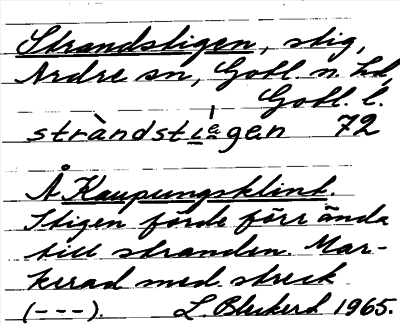 Strandstigen, stig,
Ardre sn, Gotl. n. hd,
Gotl. l.
stràndstıegen 72
Å Kaupungsklint.
Stigen förde förr ända
till stranden. Mar-
kerad med streck
(---). L. Bleckerd 1965.